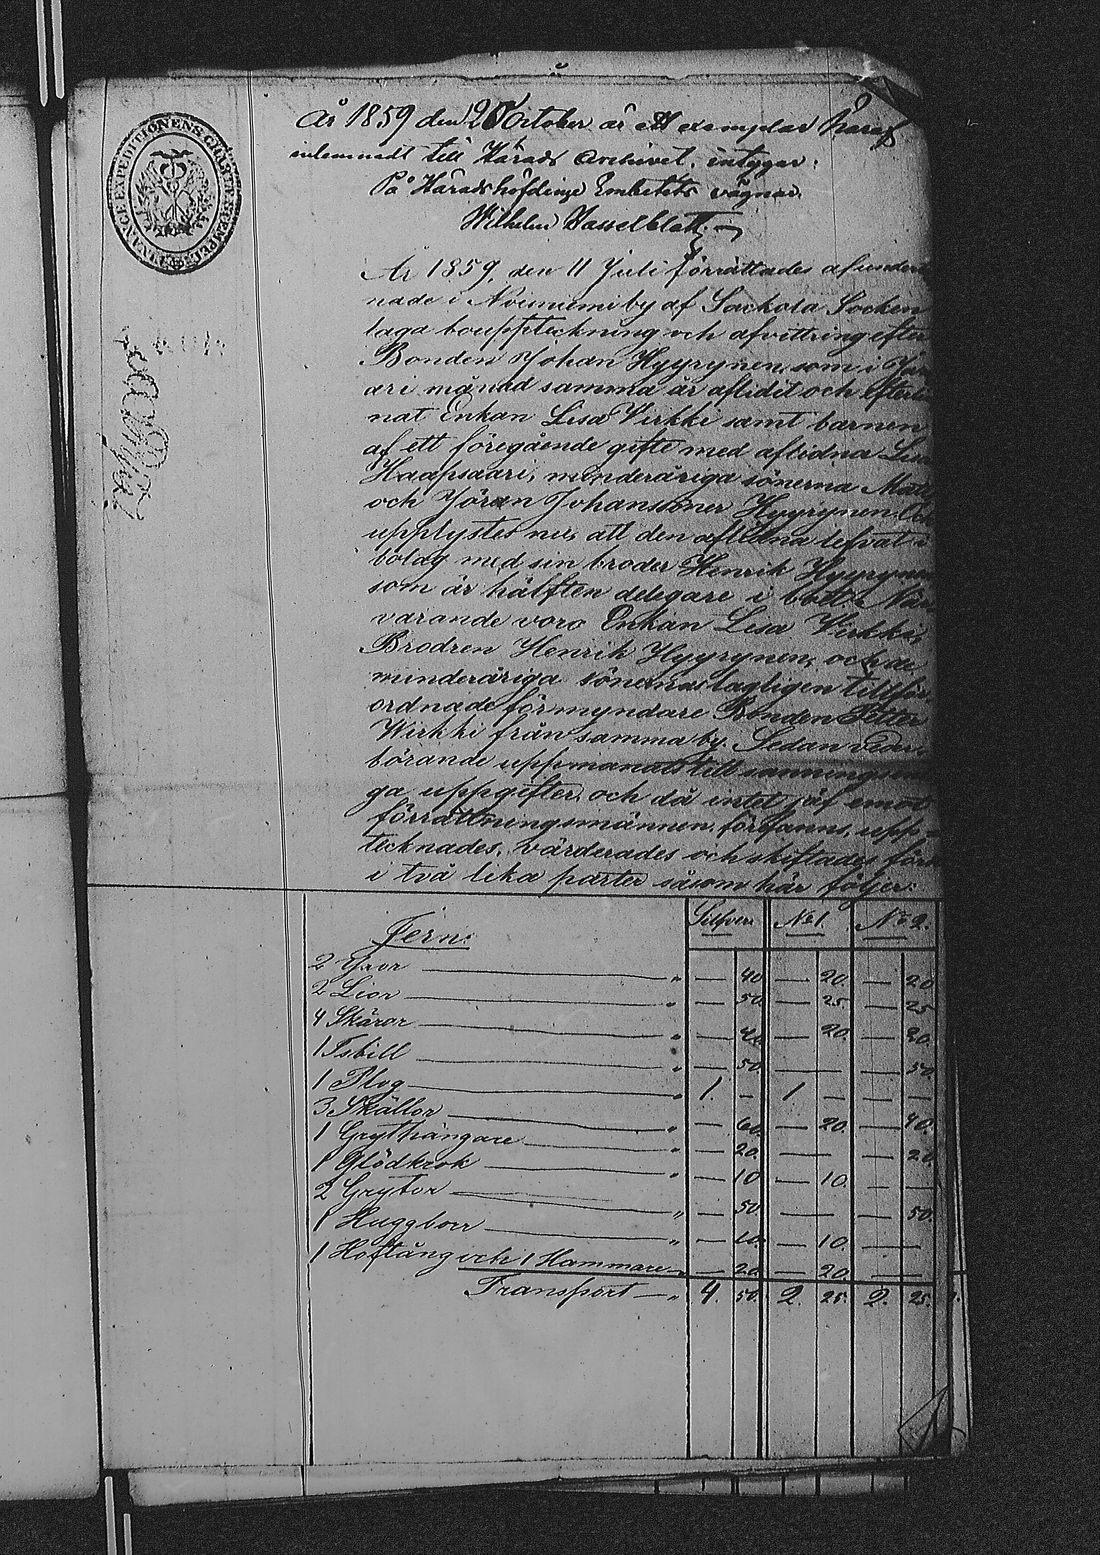 År 1859 den 20 October är ett exemplar häraf
inlemnadt till Härads Archivet, intygar:
På Häradshöfdinge Embetets vägnar
Wilhelm Hasselblatt.
FINANCE EXPEDITIONENS CHARTÆ STEMPEL
År 1859, den 11 Juli förrättades af underteck
nade i Noisniemi by af Sackola Socken
laga bouppteckning och afvittring efter
Bonden Johan Hyyrynen som i Janu
ari månad samma år aflidit och efterlem
nat Enkan Lisa Virkki samt barnen
af ett föregående gifte med aflidna Lisa
Haapsaari, minderåriga sönerna Matts
och Jöran Johanssöner Hyyrynen. Och
upplystes nu, att den aflidna lefvat i
bolag med sin broder Henrik Hyyrynen
som är hälften delegare i boet. När
varande voro Enkan Lisa Virkki,
Brodren Henrik Hyyrynen, och de
minderåriga sönernas lagligen tillför
ordnade förmyndare Bonden Petter
Wirkki från samma by. Sedan veder
börande uppmanats till sanningsenli
ga uppgifter, och då intet jäf emot
förrättningsmännen förefanns, upp=
tecknades, värderades och skiftades först
i två lika parter såsom här följer:
Jern: Silfver. No 1. No 2.
2 Yxor " — 40. — 20. — 20
2 Lior " — 50. — 25. — 25
4 Skäror " — 40. — 20. — 20.
1 Isbill " — 50. — — 50.
1 Plog " 1. — 1 — —
3 Skällor " — 60. — 20. — 40.
1 Grythängare " — 20. — — 20.
1 Glödkrok " — 10 — 10. —
2 Grytor " — 50. — — 50.
1 Huggborr " — 10. — 10. —
1 Hoftång och 1 Hammare " — 20. — 20. —
Transport — " 4. 50. 2. 25. 2. 25.